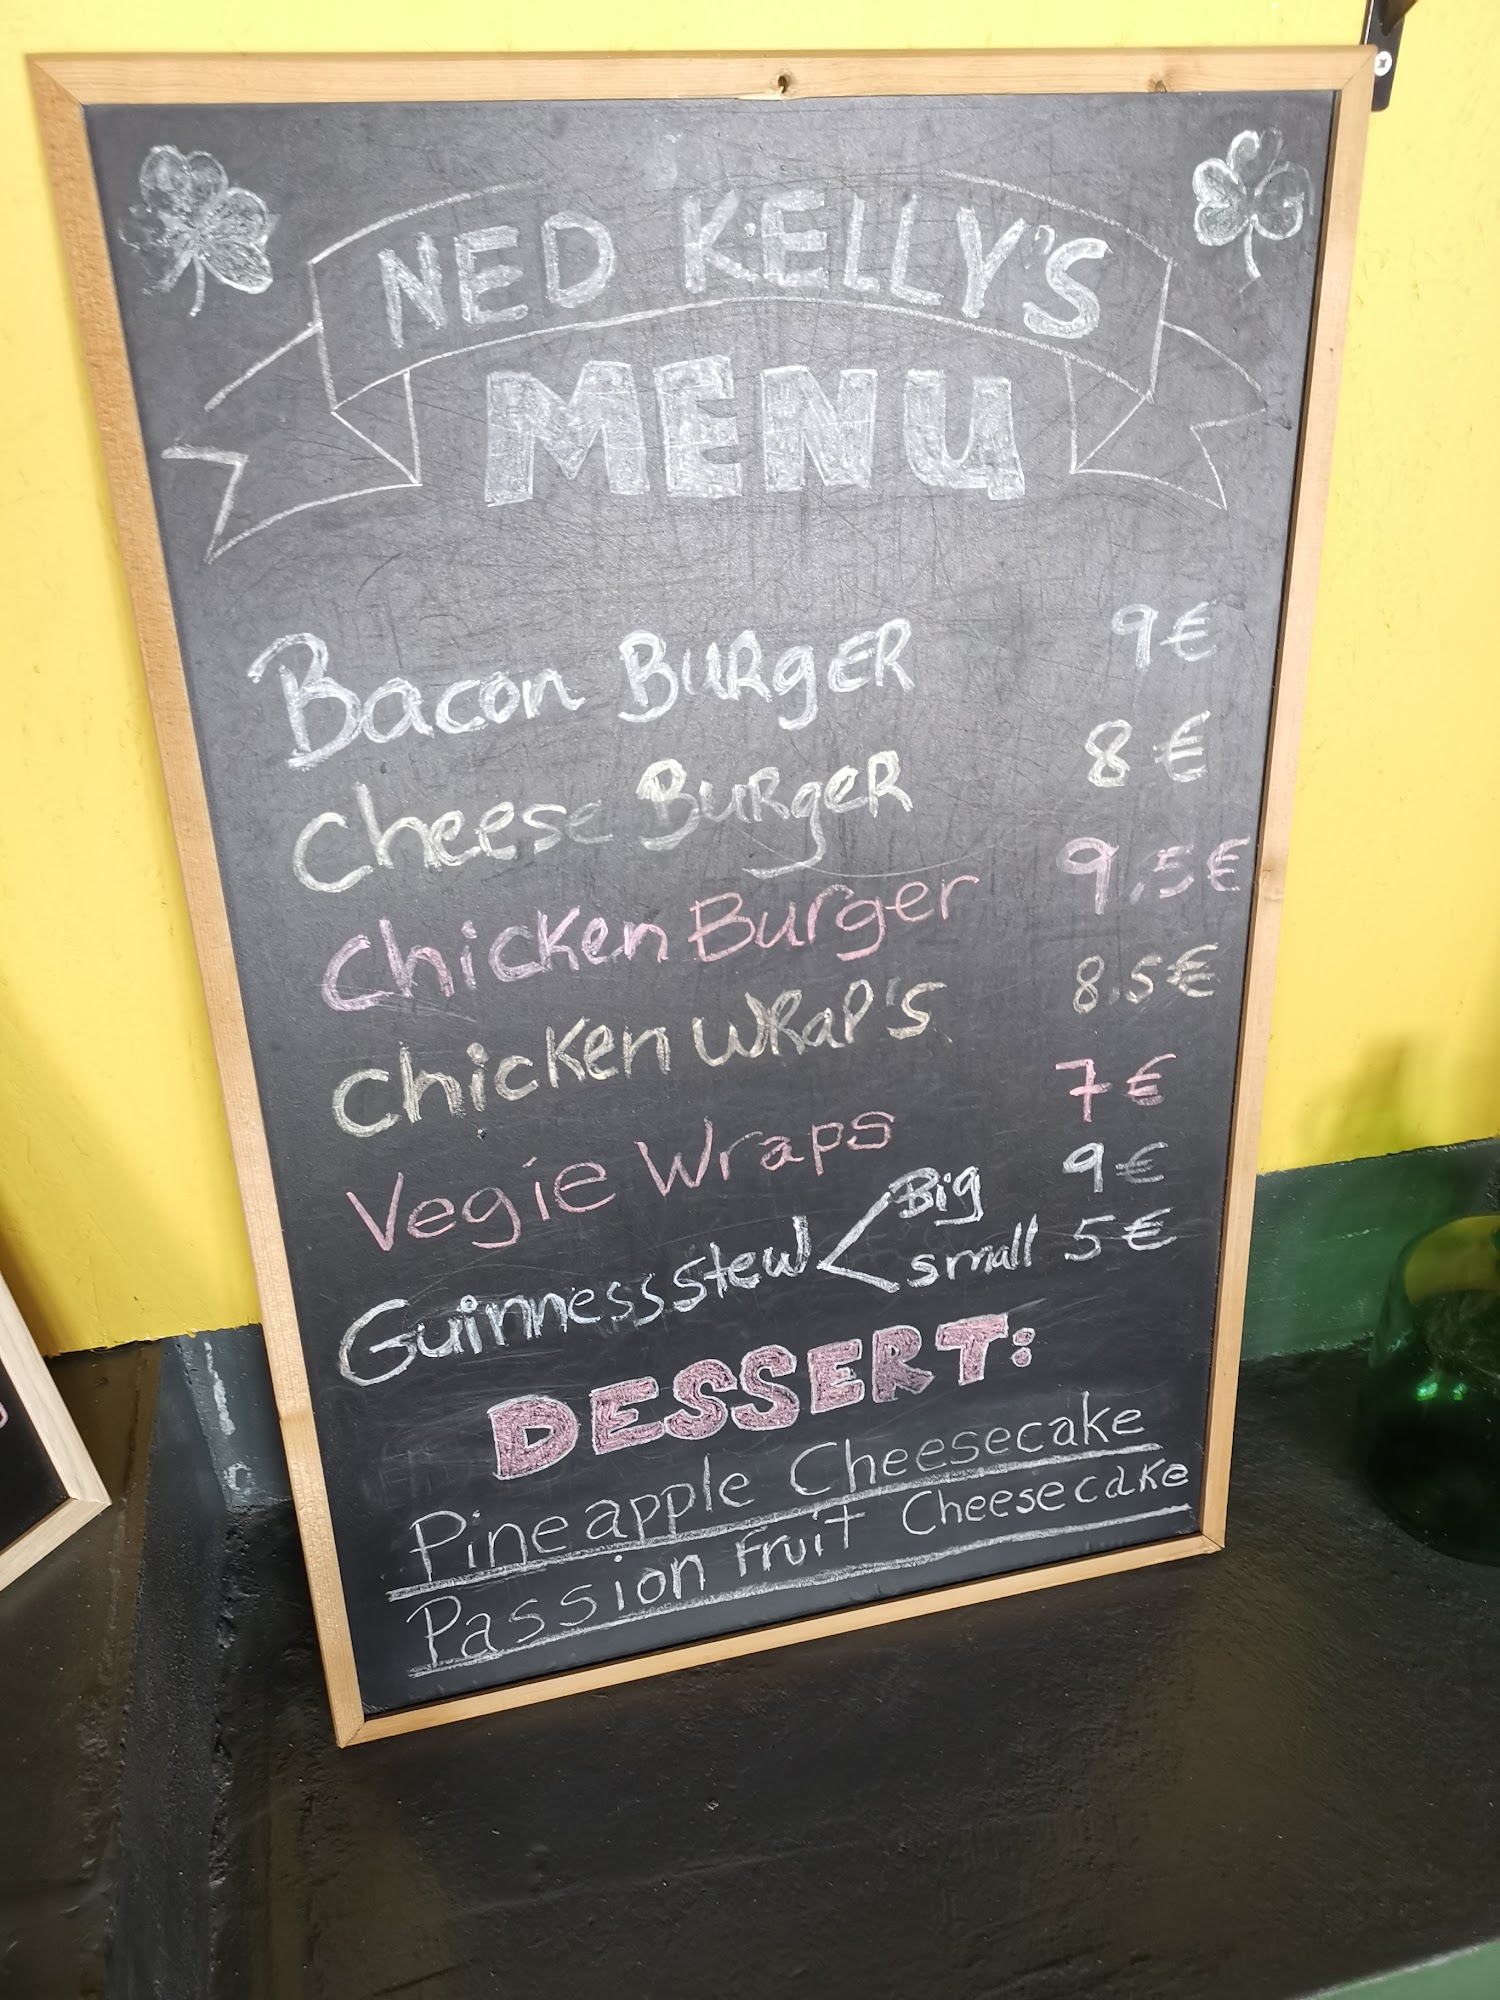 NED KELLY'S
MENU
Bacon BURgER 9€
Cheese BURgeR 8€
Chicken Burger 9.5€
Chicken WRaP'S 8.5€
Vegie Wraps 7€
Guinness stew < Big 9€
small 5€
DESSERT:
Pineapple Cheesecake
Passion Fruit Cheesecake